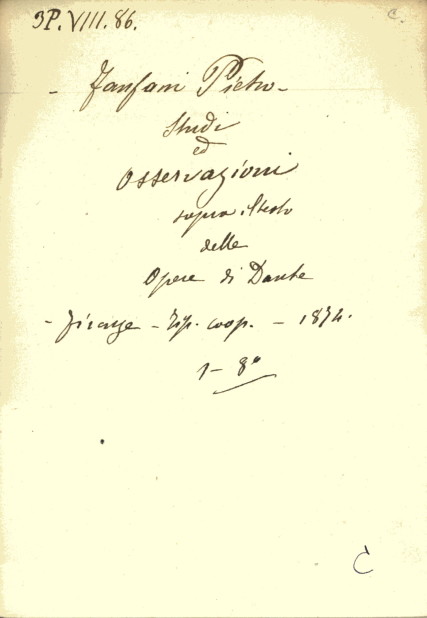 3P. VIII. 86.
C.
- Fanfani Pietro -
Studi
ed
Osservazioni
sopra il testo
delle
Opere di Dante
- Firenze - Tip. coop. - 1874.
1 - 8°
C